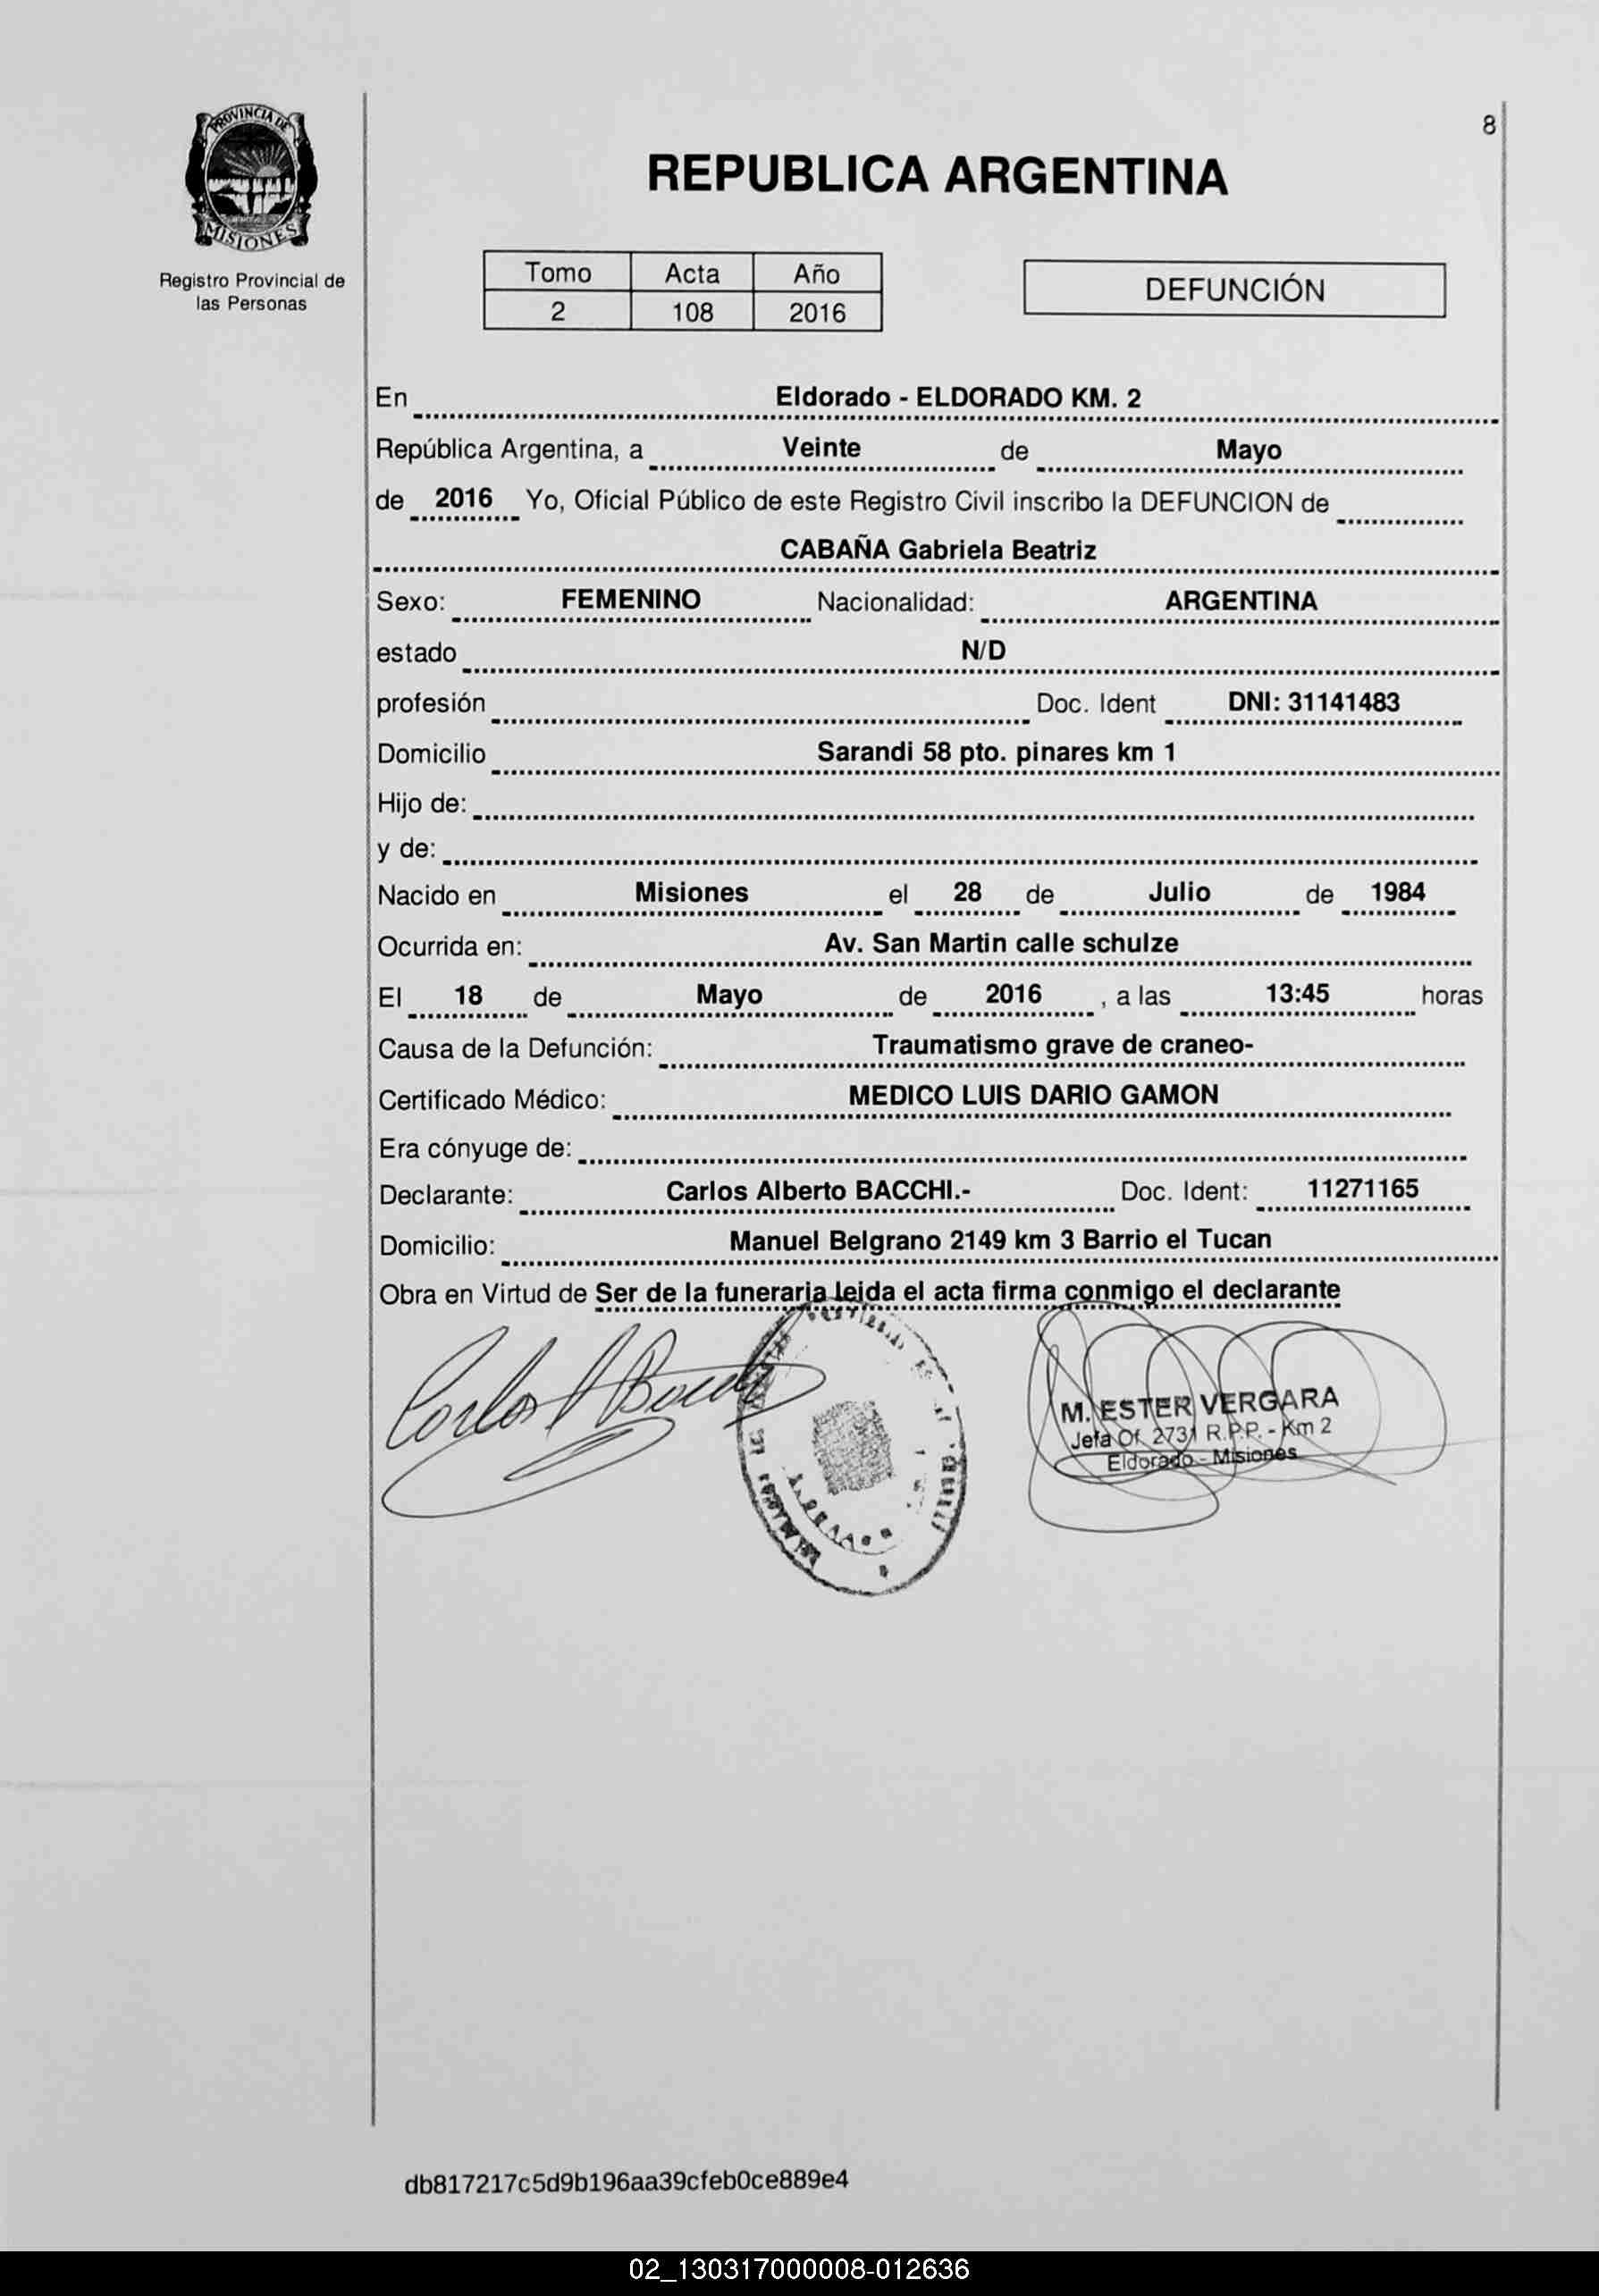 PROVINCIA DE
MISIONES
Registro Provincial de
las Personas
8
REPUBLICA ARGENTINA
Tomo Acta Año
2 108 2016
DEFUNCIÓN
En Eldorado - ELDORADO KM. 2
República Argentina, a Veinte de Mayo
de 2016 Yo, Oficial Público de este Registro Civil inscribo la DEFUNCION de
CABAÑA Gabriela Beatriz
Sexo: FEMENINO Nacionalidad: ARGENTINA
estado N/D
profesión Doc. Ident DNI: 31141483
Domicilio Sarandi 58 pto. pinares km 1
Hijo de:
y de:
Nacido en Misiones el 28 de Julio de 1984
Ocurrida en: Av. San Martin calle schulze
El 18 de Mayo de 2016 , a las 13:45 horas
Causa de la Defunción: Traumatismo grave de craneo-
Certificado Médico: MEDICO LUIS DARIO GAMON
Era cónyuge de:
Declarante: Carlos Alberto BACCHI.- Doc. Ident: 11271165
Domicilio: Manuel Belgrano 2149 km 3 Barrio el Tucan
Obra en Virtud de Ser de la funeraria leida el acta firma conmigo el declarante
M. ESTER VERGARA
Jefa Of. 2731 R.P.P. - Km 2
Eldorado - Misiones
db817217c5d9b196aa39cfeb0ce889e4
02_130317000008-012636